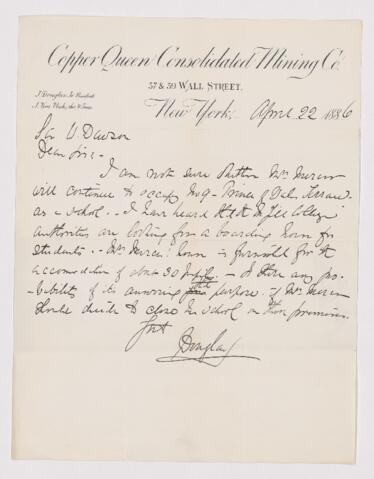 Copper Queen Consolidated Mining Co.
57 & 59 WALL STREET.
J. Douglas, Jr. President
New York, April 22 1886
Sir W. Dawson
Dear Sir -
I am not sure whether Mrs Mercer
will continue to occupy No 9 - Prince of Wales Terrace
as a school. - I have heard that the McGill College
authorities are looking for a boarding house for
students. - Mrs Mercer's house is furnished for the
accomodation of about 30 - Is there any pro-
bability of its answering the purpose if Mrs Mercer
should decide to close her school on those premises.
J Douglas